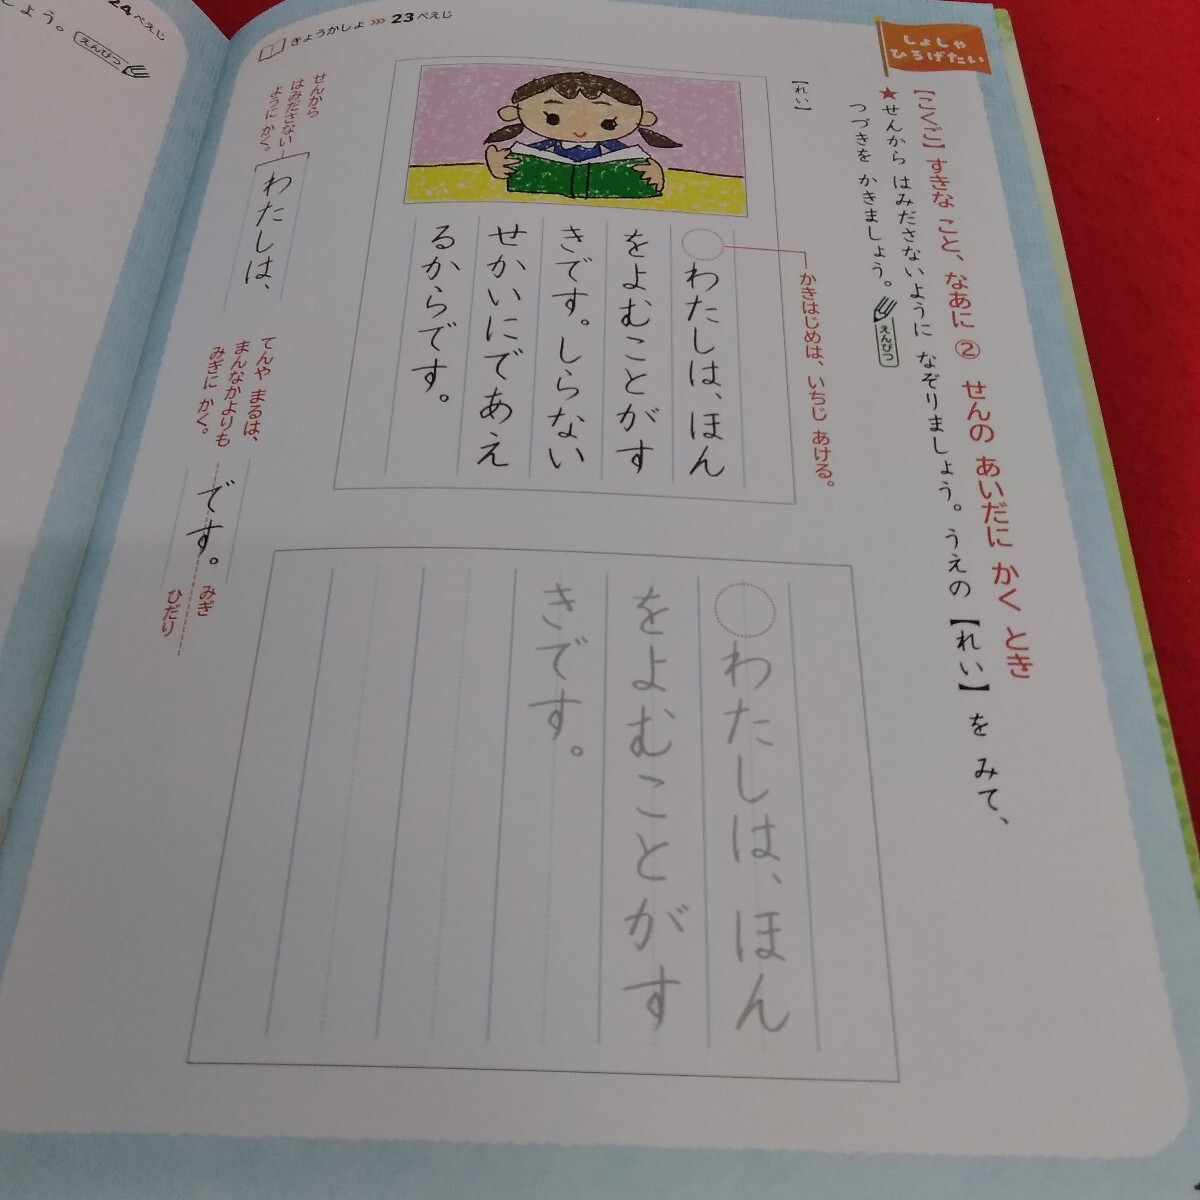 24ぺえじ
しょう。
えんぴつ
きょうかしょ 23ぺえじ
しょしゃ
ひろげたい
【こくご】すきな こと、なあに ② せんの あいだに かく とき
★せんから はみださないように なぞりましょう。うえの【れい】を みて、
つづきを かきましょう。
えんぴつ
【れい】
かきはじめは、いちじ あける。
わたしは、ほん
をよむことがす
きです。しらない
せかいにであえ
るからです。
せんから
はみださない
ように かく。
わたしは、
てんや まるは、
まんなかよりも
みぎに かく。
です。
みぎ
ひだり
わたしは、ほん
をよむことがす
きです。